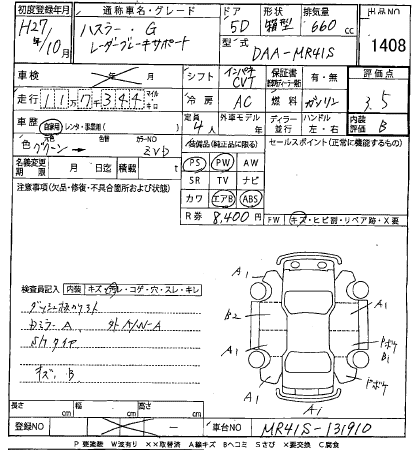 初度登録年月 通称車名・グレード ドア 形状 排気量 出品NO
H27年/10月 ハスラー・G レーダーブレーキサポート 5D 箱型 660cc 1408
型式 DAA-MR41S
車検 年 月 シフト インパネ CVT 保証書 有・無 評価点
走行 117344 マイル キロ 冷房 AC 燃料 ガソリン 3.5
車歴 自家用・レンタ・事業用( ) 定員 4人 外車モデル 年 ディーラー 並行 ハンドル 左・右 内装評価 B
色 グリーン 色替 カラーNO ZVD 装備品(純正品に限る) セールスポイント(正常に機能するもの)
名義変更期限 月 日迄 積載 t PS PW AW
注意事項(欠品・修復・不具合箇所および状態) SR TV ナビ
カワ エアB ABS
R券 8,400円 FW キズ・ヒビ割・リペア跡・X要
検査員記入 内装 キズ・汚レ・コゲ・穴・スレ・キレ
A1
B2 A1
A1
ドボケ
B1
A1
ドボケ
A1
キズ.B
長さ cm 幅 cm 高さ cm
登録NO 車台NO MR41S-131910
P 要塗装 W波有り ××取替済 A線キズ Bヘコミ Sさび ×要交換 C腐食